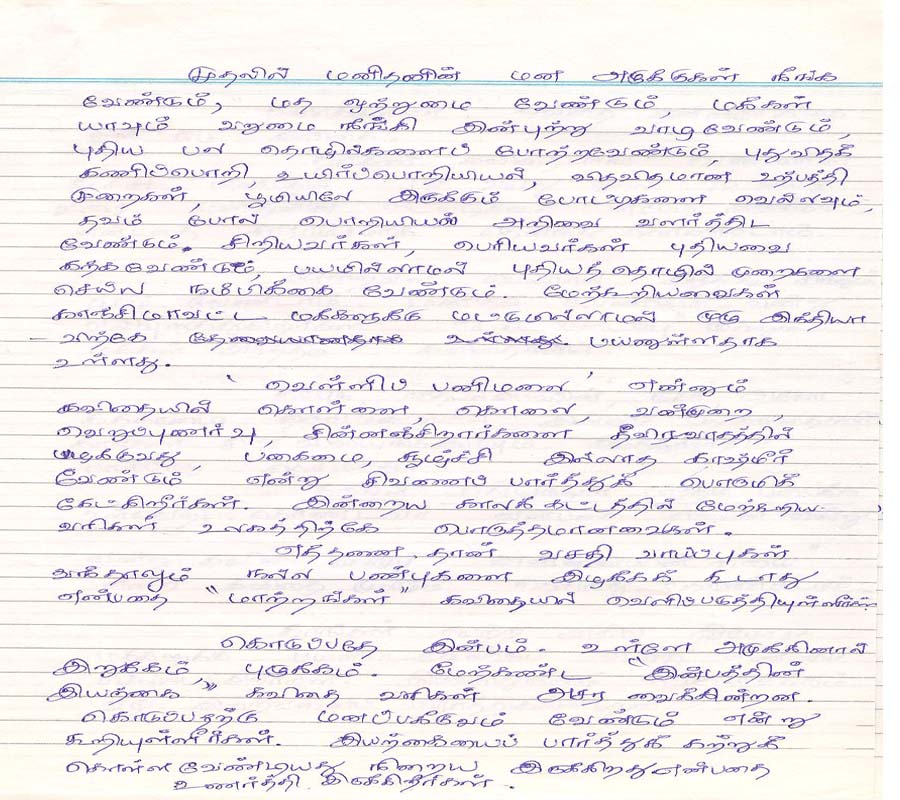 முதலில் மனிதனின் மன அழுக்குகள் நீங்க
வேண்டும், மத ஒற்றுமை வேண்டும், மக்கள்
யாவரும் வறுமை நீங்கி இன்புற்று வாழவேண்டும்,
புதிய பல தொழில்களைப் போற்றவேண்டும், புதுவிதக்
கணிப்பொறி, உயிர்ப்பொறியியல், விதவிதமான உற்பத்தி
முறைகள், பூமியிலே இருக்கும் போட்டிகளை வெல்லவும்,
தவம் போல் பொறியியல் அறிவை வளர்த்திட
வேண்டும். சிறியவர்கள், பெரியவர்கள் புதியவை
கற்கவேண்டும், பயமில்லாமல் புதியத் தொழில் முறைகளை
செய்ய நம்பிக்கை வேண்டும். மேற்கூறியவைகள்
காஞ்சிமாவட்ட மக்களுக்கு மட்டுமல்லாமல் முழு இந்தியா
- விற்கே பயனுள்ளதாக
உள்ளது.
'வெள்ளிப் பனிமலை' என்னும்
கவிதையில் கொள்ளை, கொலை, வன்முறை,
வெறுப்புணர்வு, சின்னஞ்சிறார்களை தீவிரவாதத்தில்
பகைமை, சூழ்ச்சி இல்லாத காஷ்மீர்
வேண்டும் என்று சிவனைப் பார்த்துக்
கேட்கிறீர்கள். இன்றைய காலக் கட்டத்தில் மேற்கூறிய
வரிகள் உலகத்திற்கே பொருத்தமானவைகள்.
எத்தனை தான் வசதி வாய்ப்புகள்
வந்தாலும் நல்ல பண்புகளை இழக்கக் கூடாது
என்பதை "மாற்றங்கள்" கவிதையில் வெளிப்படுத்தியுள்ளீர்கள்
கொடுப்பதே இன்பம். உள்ளே அழுக்கினால்
இறுக்கம், புழுக்கம். மேற்கண்ட "இன்பத்தின்
இயற்கை" கவிதை வரிகள் அசர வைக்கின்றன.
கொடுப்பதற்கு மனப்பக்குவம் வேண்டும் என்று
கூறியுள்ளீர்கள். இயற்கையைப் பார்த்துக் கற்றுக்
கொள்ள வேண்டியது நிறைய இருக்கிறது என்பதை
உணர்த்தி இருக்கிறீர்கள்.